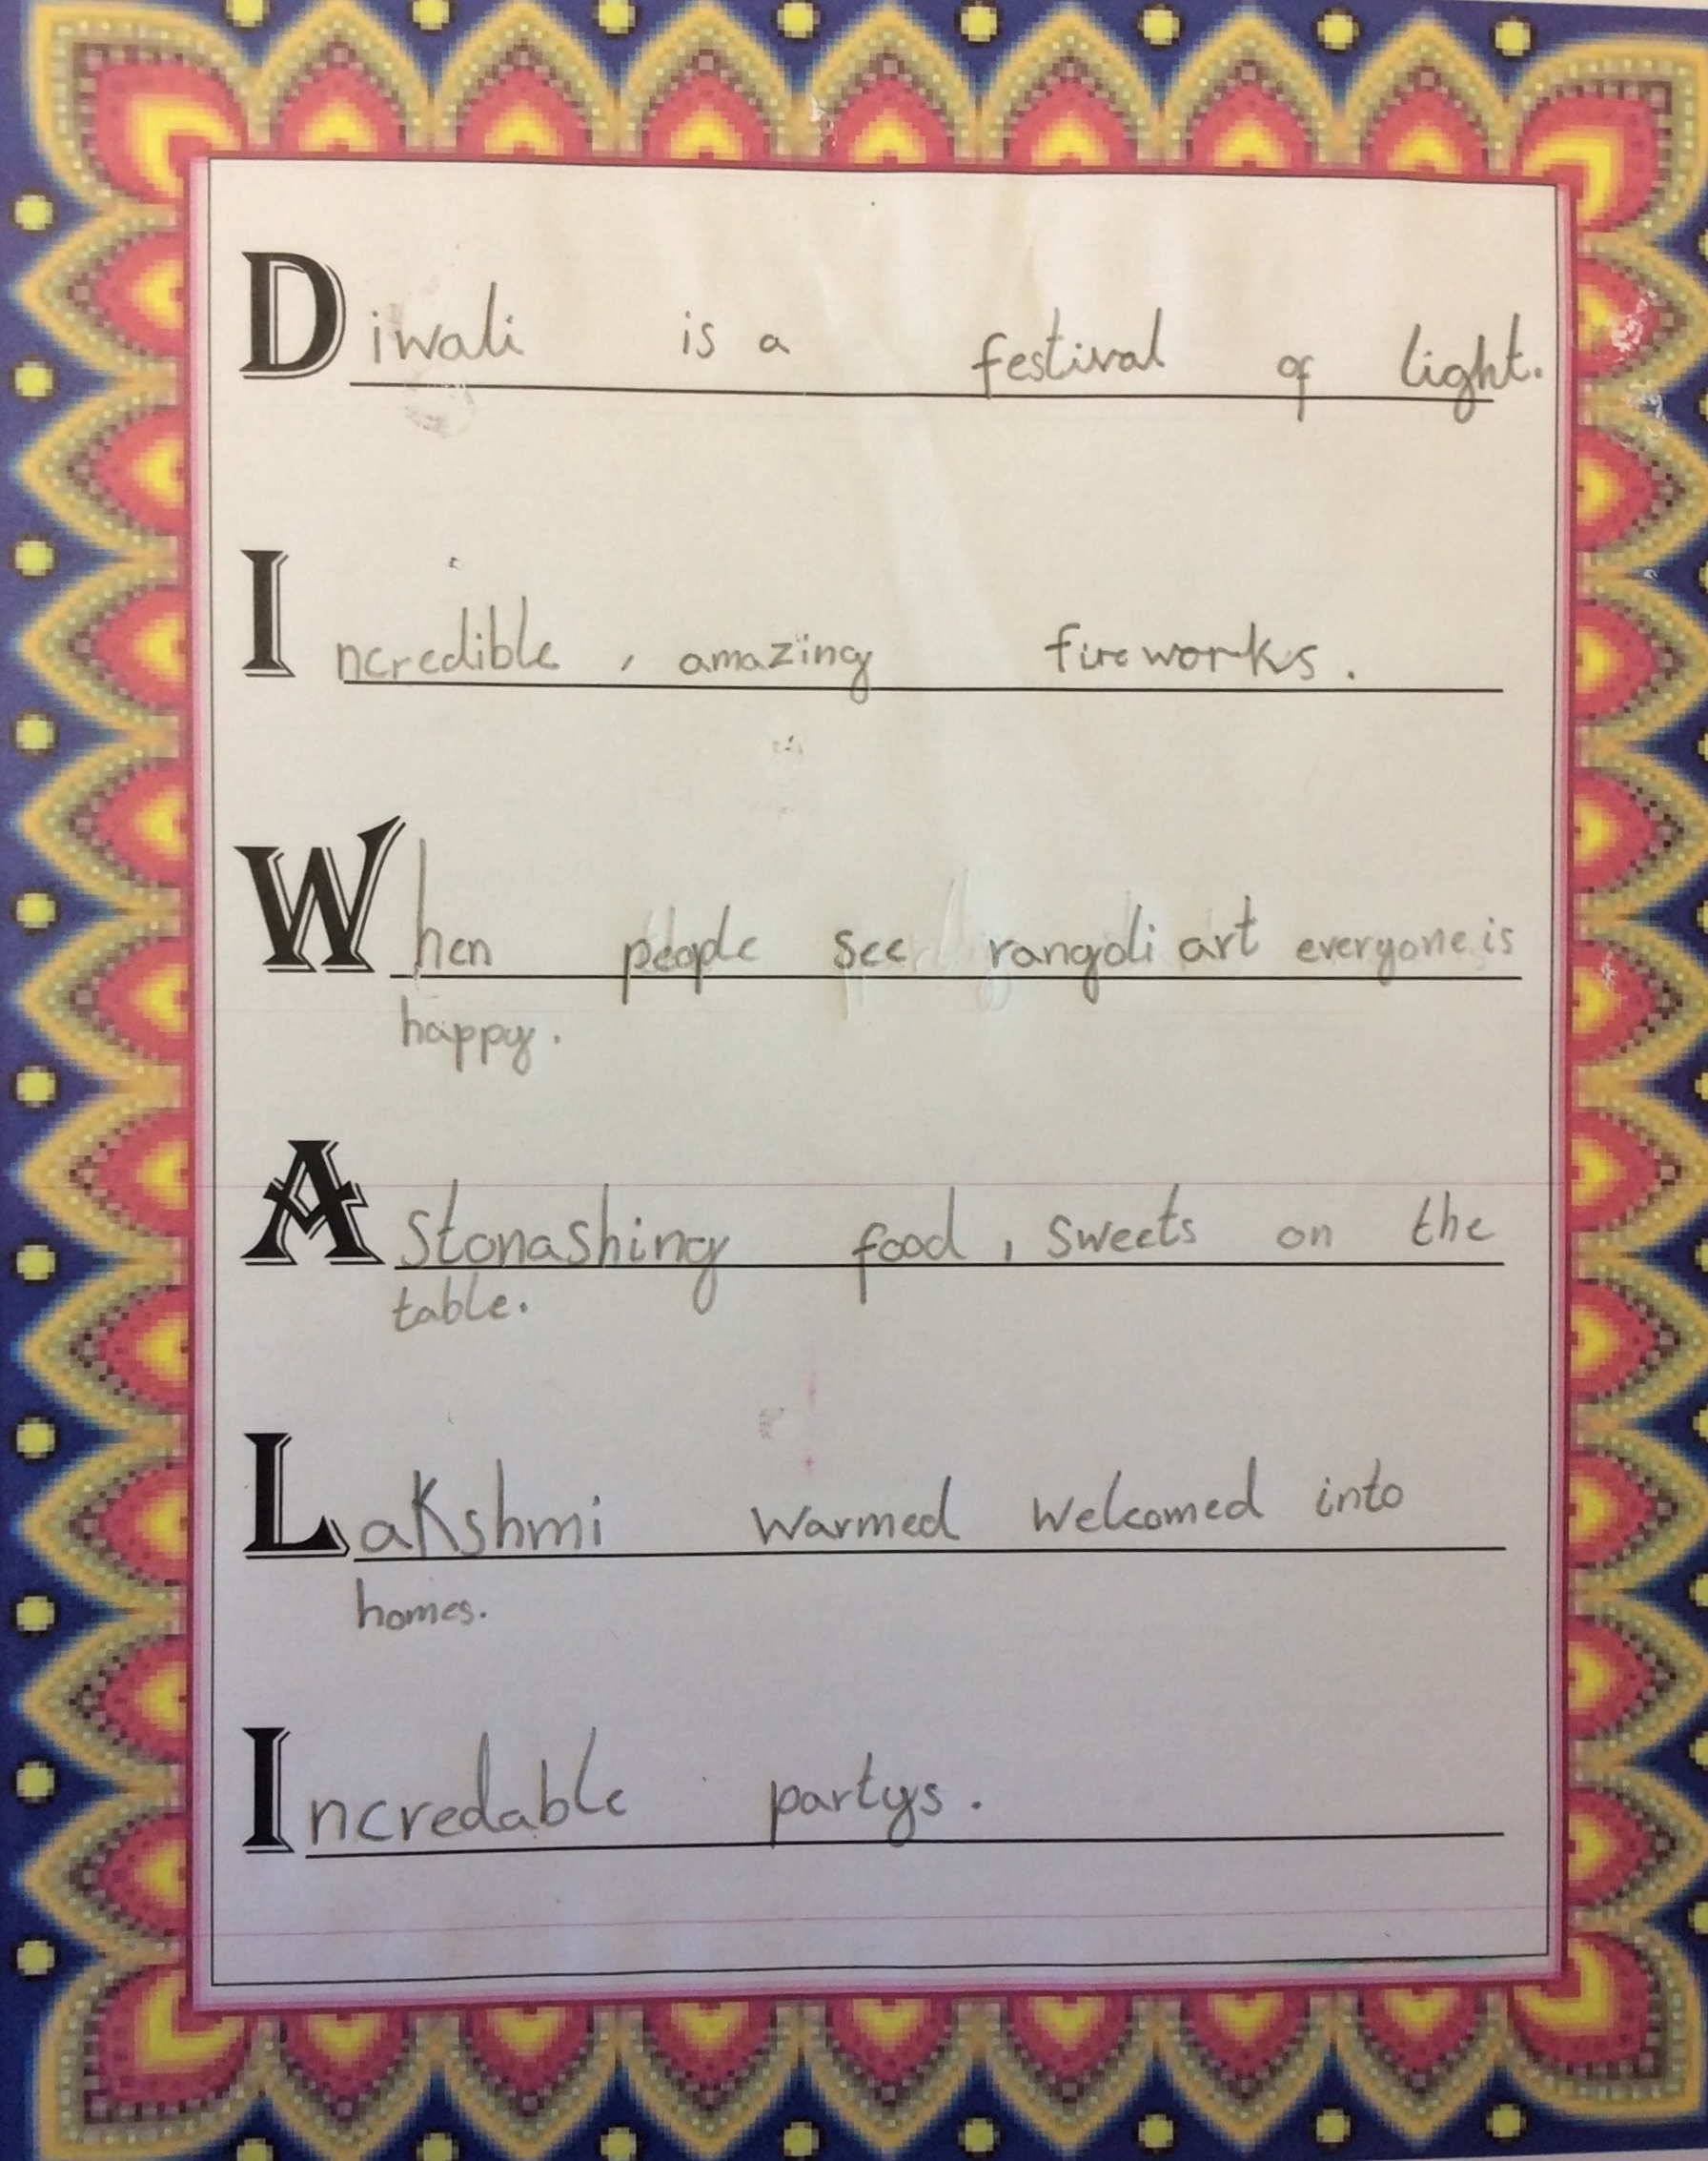 Diwali is a festival of light.
Incredible, amazing fireworks.
When people see rangoli art everyone is
happy.
Astonashing food, sweets on the
table.
Lakshmi warmed welcomed into
homes.
Incredable partys.